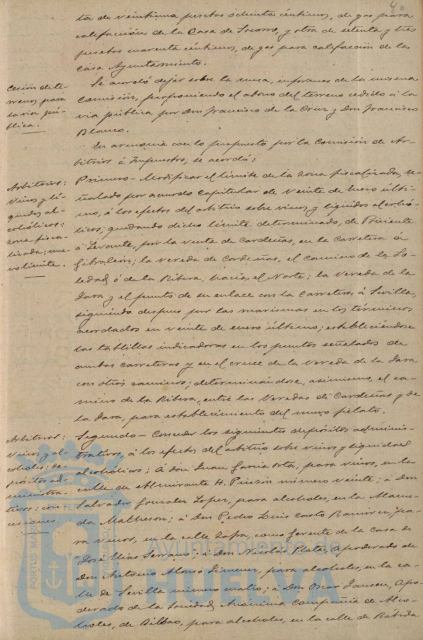 ta de veintiuna pesetas ochenta céntimos, de gas para
calefacción de la Casa de Socorro, y otra de setenta y tres
pesetas cuarenta céntimos, de gas para calefacción de la
Casa Ayuntamiento.
Cesión de te-
rrenos para
la vía pú-
blica.
Se acordó dejar sobre la mesa, informe de la misma
Comisión, proponiendo el abono del terreno cedido a la
vía pública por don Francisco de la Cruz y Don Francisco
Blanco.
En armonía con lo propuesto por la Comisión de Ar-
bitrios é Impuestos, se acordó:
Arbitrios:
Vinos y lí-
quidos al-
cohólicos:
zona fisca-
lizada; nue-
vo límite.
Primero - Modificar el límite de la zona fiscalizada, se-
ñalado por acuerdo Capitular de veinte de Enero últi-
mo, á los efectos del arbitrio sobre vinos y líquidos alcohóli-
cos, quedando dicho límite determinado, de Poniente
á Levante, por la venta de Cardeñas, en la Carretera á
Gibraleón; la vereda de Cardeñas, el camino de la So-
ledad, ó de la Ribera, hacia el Norte; la vereda de la
y el punto de su enlace con la Carretera, á Sevilla,
siguiendo despues por las marismas en los términos
acordados en veinte de enero último; estableciéndose
las tablillas indicadoras en los puntos señalados de
ambas carreteras y en el cruce de la vereda de la
con otros caminos; determinandose, asimismo, el ca-
mino de la Ribera, entre las Veredas de Cardeñas y de
la para establecimiento del nuevo fielato.
Arbitrios:
Vinos y al-
coholes; de-
pósitos ad-
ministra-
tivos; con-
cesiones.
Segundo - Conceder los siguientes depósitos adminis-
trativos, á los efectos del arbitrio sobre vinos y líquidos
alcohólicos; Á don Juan García para vinos, en la
calle de Almirante H. Pinzón número veinte; á don
Salvador Gonzalez Lopez, para alcoholes, en la
Matheson; á don Pedro Luis Carlo Ramirez, pa-
ra vinos, en la calle como Gerente de la Casa de
José Mías Serrano; á don Nicolás Plata, apoderado de
don Antonio Alonso Jimenez, para alcoholes, en la ca-
lle de Sevilla número cuatro; á don Oscar Jansen, Apo-
derado de la Sociedad Anónima Compañía de Alco-
holes, de Bilbao, para alcoholes, en la calle de Rábida
Ayuntamiento de
HUELVA